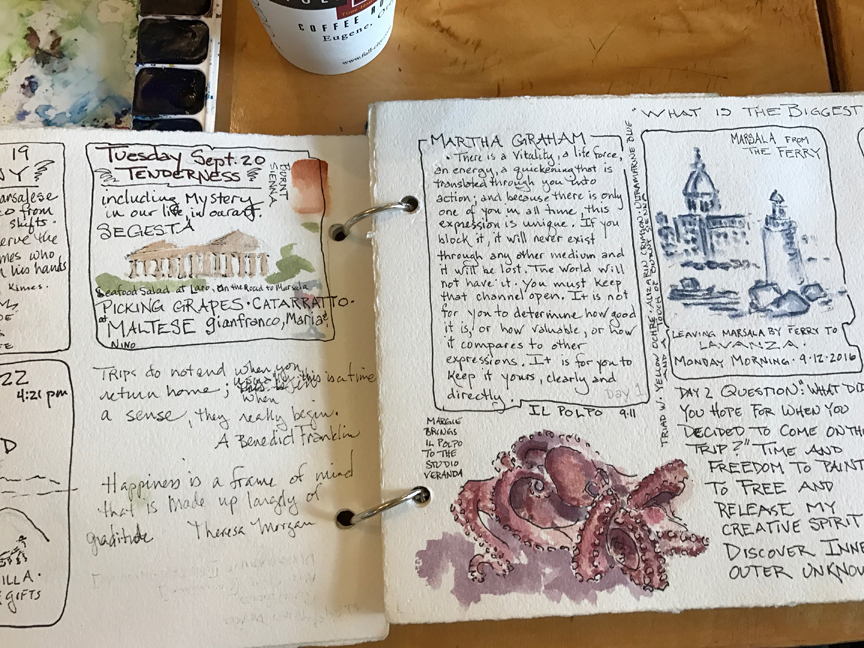 COFFEE
Eugene,
19
skills.
serve the
mes who
his hands
Kimes.
22
4:21 pm
D
ILLA.
GIFTS
Tuesday Sept. 20
TENDERNESS
BURNT
SIENNA
including Mystery
in our life, in our art.
SEGESTA
Seafood Salad at Lato, On the Road to Marsala
PICKING GRAPES · CATARRATTO ·
at MALTESE gianfranco, Maria
Nino
Trips do not end when you
return home; this is a time
when
a sense, they really begin.
A Benedict Franklin
Happiness is a frame of mind
that is made up largely of
gratitude Theresa Morgan
MARTHA GRAHAM
· There is a Vitality, a life force,
an energy, a quickening that is
translated through you into
action; and because there is only
one of you in all time, this
expression is unique. If you
block it, it will never exist
through any other medium and
it will be lost. The World will
not have it. You must keep
that channel open. It is not
for you to determine how good
it is, or how valuable, or how
it compares to other
expressions. It is for you to
keep it yours, clearly and
directly.
Day 1
IL POLPO 9·11
MARGIE
BRINGS
IL POLPO
TO THE
STUDIO
VERANDA
TRIAD W. YELLOW OCHRE · ALIZARIN CRIMSON · ULTRAMARINE BLUE
AND A TOUCH OF BURNT SIENNA
"WHAT IS THE BIGGEST
MARSALA FROM
THE FERRY
LEAVING MARSALA BY FERRY TO
LAVANZA.
MONDAY MORNING · 9·12·2016
DAY 2 QUESTION: "WHAT DID
YOU HOPE FOR WHEN YOU
DECIDED TO COME ON TH
TRIP?" TIME AND
FREEDOM TO PAINT
TO FREE AND
RELEASE MY
CREATIVE SPIRIT
DISCOVER INNE
OUTER UNKNOW